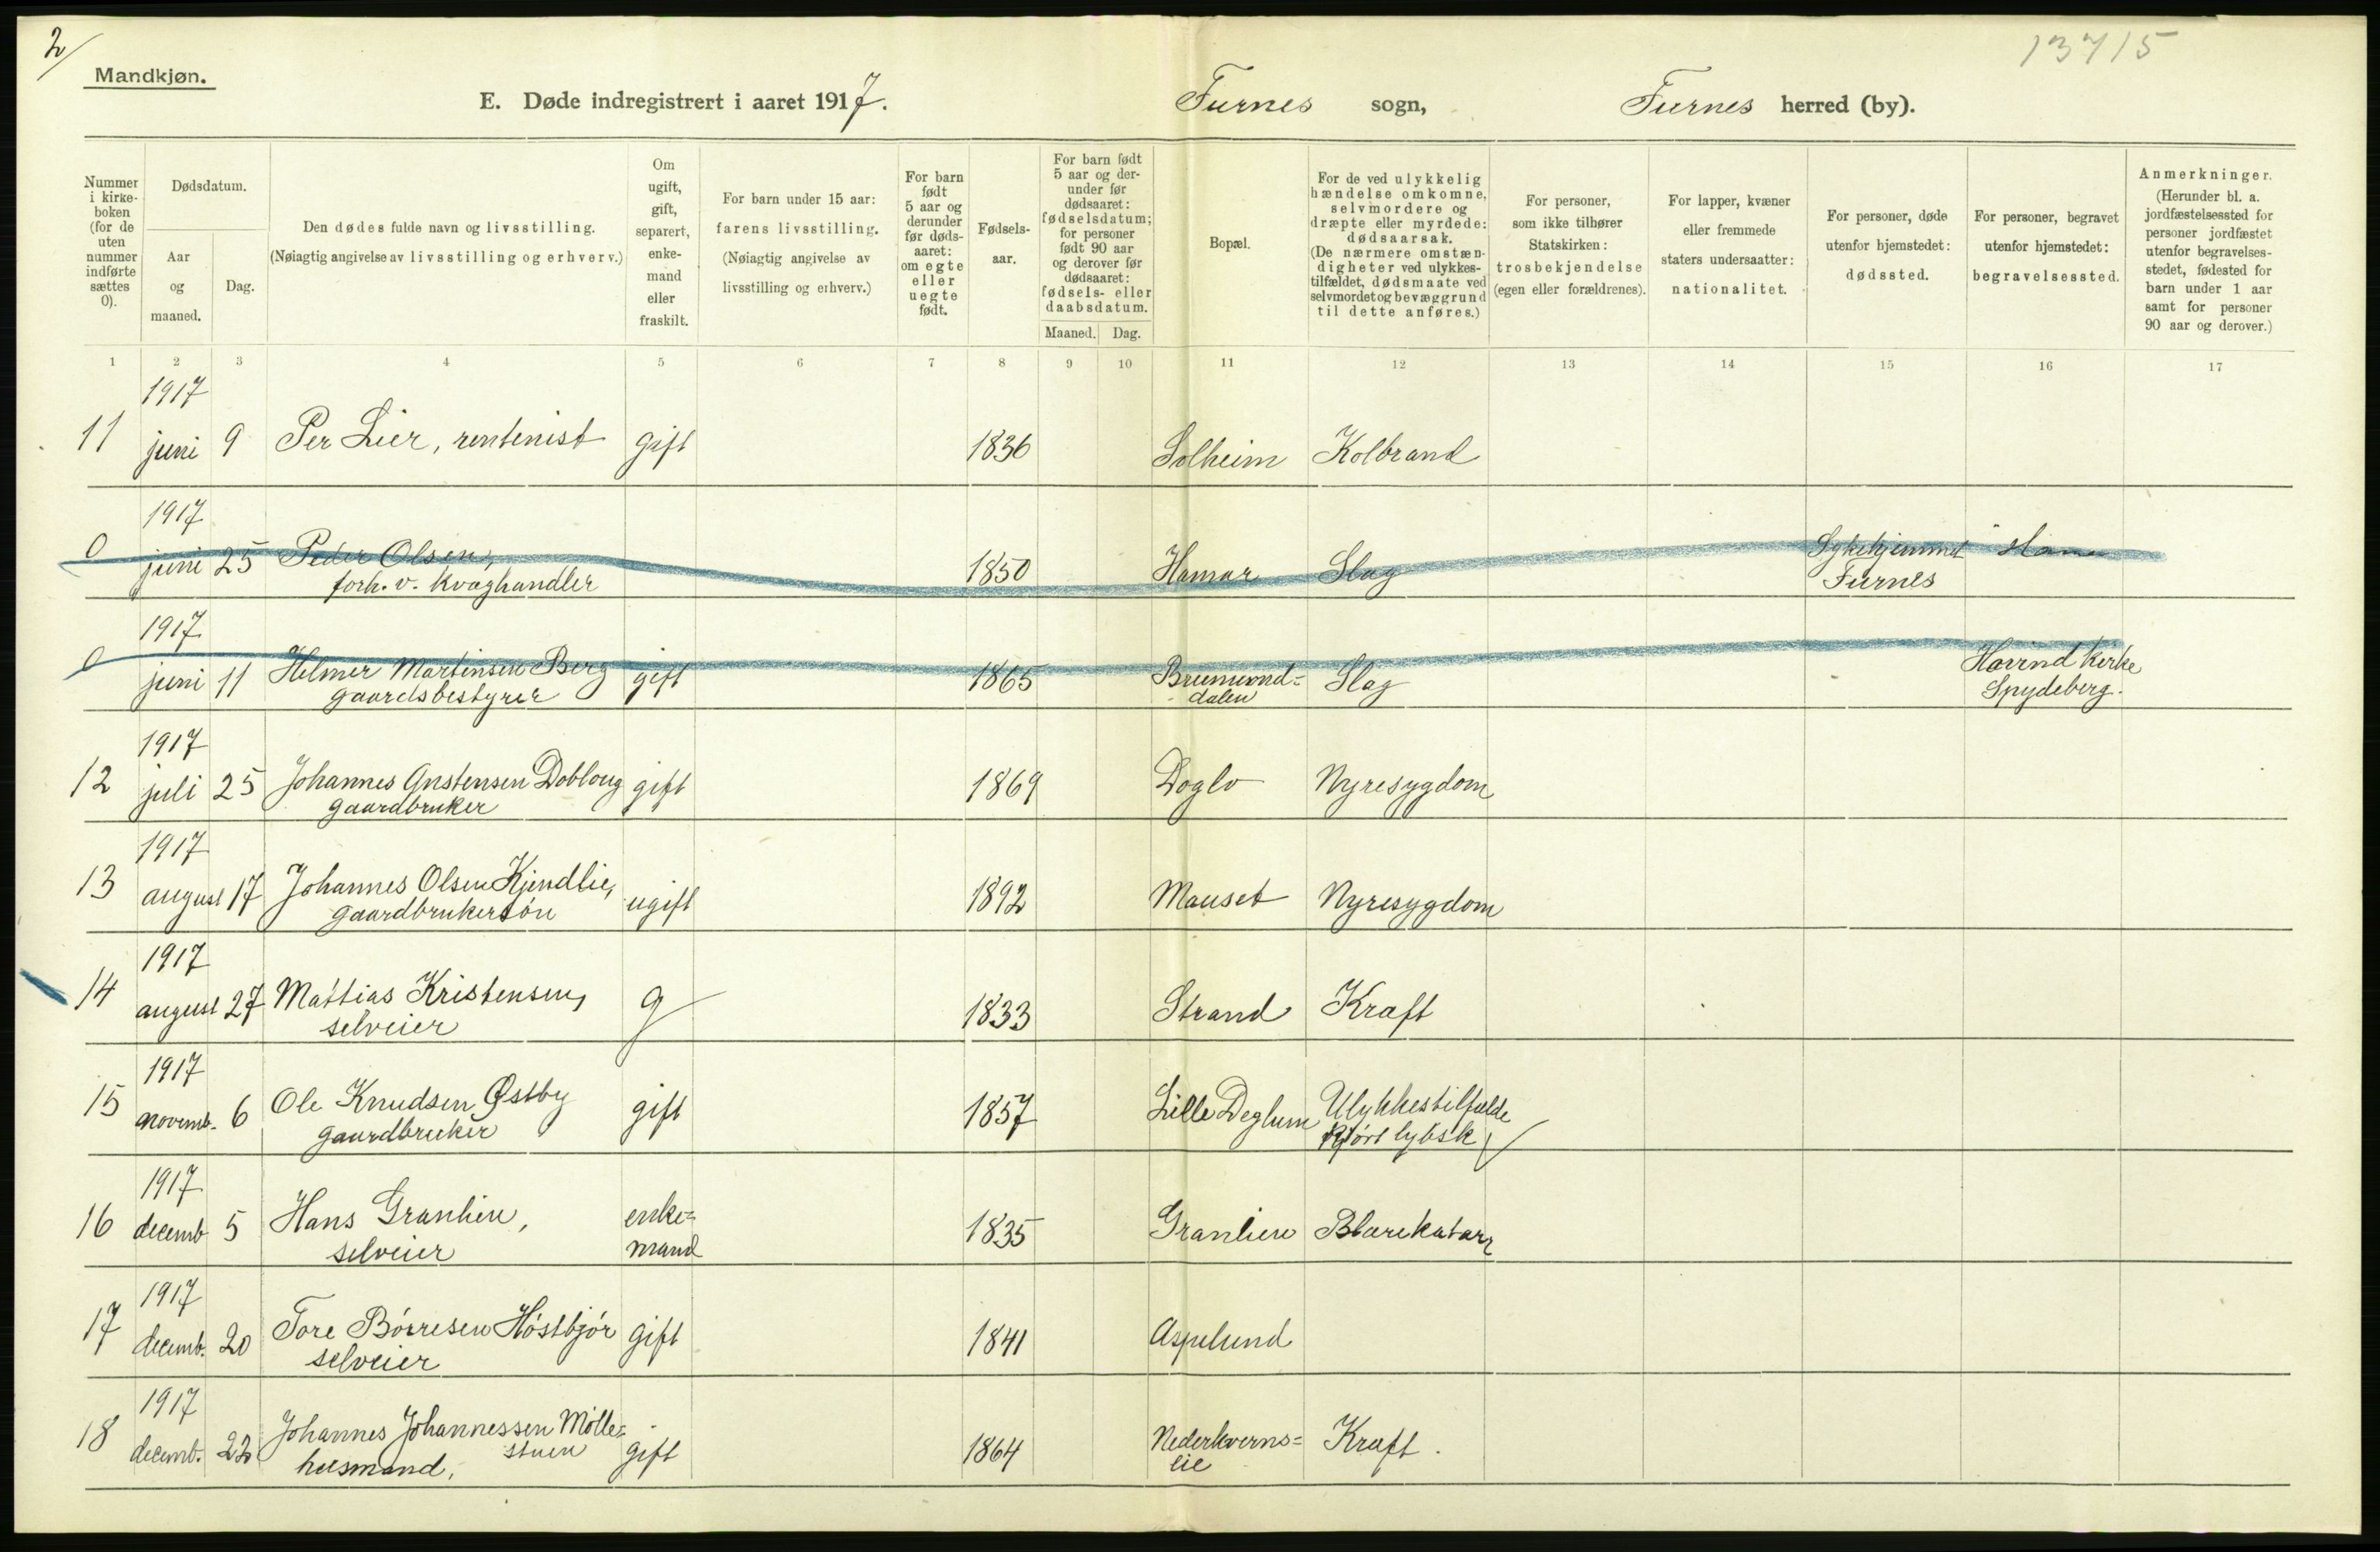 2/
13715
Mandkjøn.
E. Døde indregistrert i aaret 1917.
Furnes sogn, Furnes herred (by).
Nummer i kirke-boken (for de uten nummer indførte sættes 0).
Dødsdatum.
Aar og maaned.
Dag.
Den dødes fulde navn og livsstilling.
(Nøiagtig angivelse av livsstilling og erhverv.)
Om ugift, gift, separert, enke-mand eller fraskilt.
For barn under 15 aar:
farens livsstilling.
(Nøiagtig angivelse av livsstilling og erhverv.)
For barn født 5 aar og derunder før døds-aaret: om egte eller uegte født.
Fødsels-aar.
For barn født 5 aar og der-under før dødsaaret: fødselsdatum; for personer født 90 aar og derover før dødsaaret: fødsels- eller daabsdatum.
Maaned. Dag.
Bopæl.
For de ved ulykkelig hændelse omkomne, selvmordere og dræpte eller myrdede: dødsaarsak.
(De nærmere omstæn-digheter ved ulykkes-tilfældet, dødsmaate ved selvmordet og bevæggrund til dette anføres.)
For personer, som ikke tilhører Statskirken: trosbekjendelse (egen eller forældrenes).
For lapper, kvæner eller fremmede staters undersaatter: nationalitet.
For personer, døde utenfor hjemstedet: dødssted.
For personer, begravet utenfor hjemstedet: begravelsessted.
Anmerkninger.
(Herunder bl. a. jordfæstelsessted for personer jordfæstet utenfor begravelses-stedet, fødested for barn under 1 aar samt for personer 90 aar og derover.)
1 2 3 4 5 6 7 8 9 10 11 12 13 14 15 16 17
1917
11 juni 9 Per Lier, rentenist gift 1836 Solheim Kolbrand
1917
0 juni 25 Peder Olsen, 1850 Hamar Slag Sykehjemmet
forh. v. kvæghandler Furnes
1917
0 juni 11 Helmer Martinsen Berg gift 1865 Brumund= Slag Hovind kirke
gaardsbestyrer dalen Spydeberg.
1917
12 juli 25 Johannes Anstensen Doblong gift 1869 Doglo Nyresygdom
gaardbruker
1917
13 august 17 Johannes Olsen Kjendlie, ugift 1892 Mauset Nyresygdom
gaardbrukersön
1917
14 august 27 Mattias Kristensen, g 1833 Strand Kræft
selveier
1917
15 novemb. 6 Ole Knudsen Østby gift 1857 Lille Deglum Ulykkestilfælde
gaardbruker
1917
16 decemb 5 Hans Granlien, enke= 1835 Granlien Blærekatarr
selveier mand
1917
17 decemb. 20 Tore Börresen Höstbjör gift 1841 Aspelund
selveier
1917
18 decemb. 22 Johannes Johannessen Mölle= gift 1864 Nederkverns= Kræft.
stuen
husmand, lie